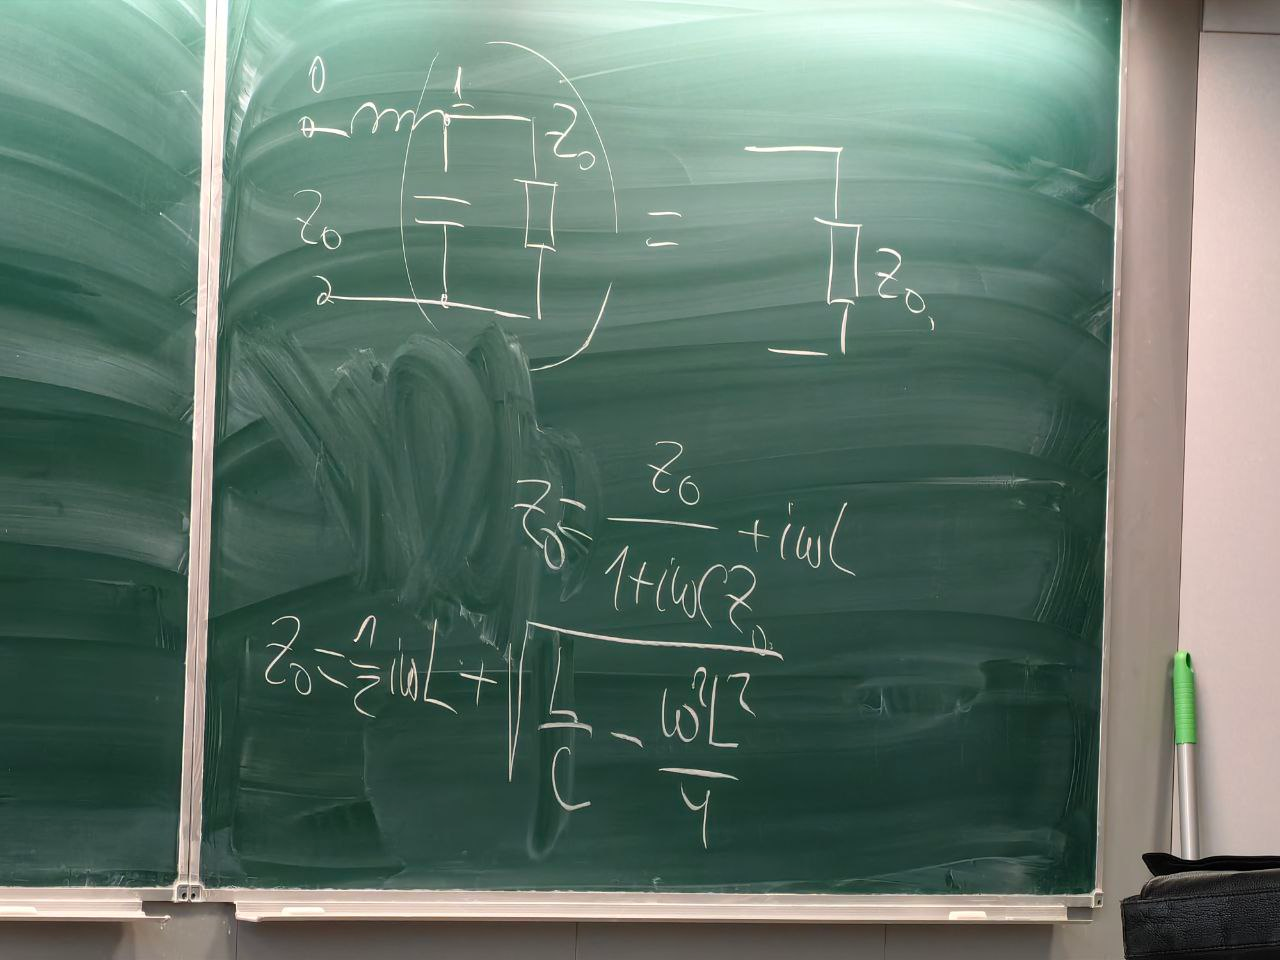 0
1
Z₀
Z₀
=
2
Z₀,
Z₀ = Z₀/(1+iωCZ₀) + iωL
Z₀ = 1/2 iωL + √(L/C - ω²L²/4)